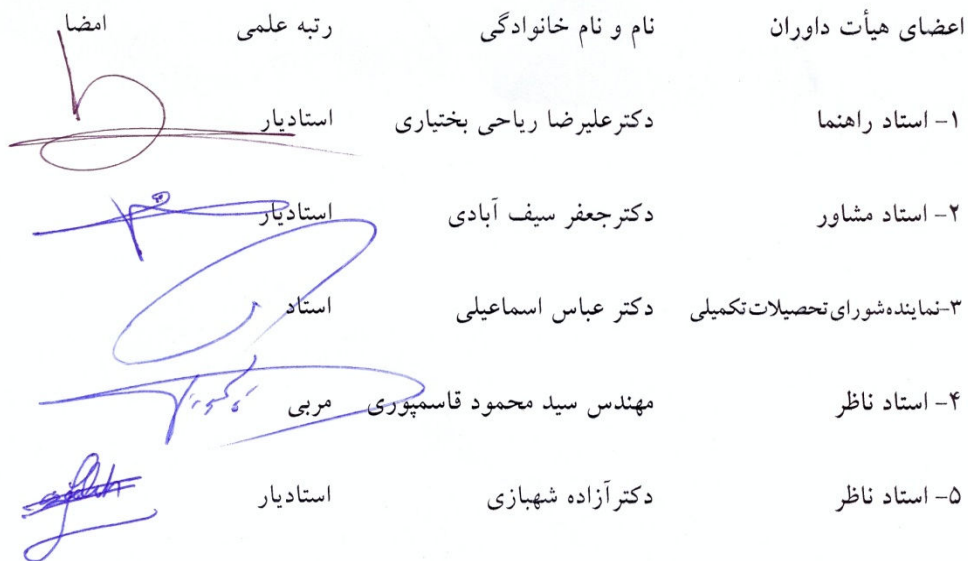 اعضای هیأت داوران نام و نام خانوادگی رتبه علمی امضا
۱- استاد راهنما دکترعلیرضا ریاحی بختیاری استادیار
۲- استاد مشاور دکترجعفر سیف آبادی استادیار
۳-نماینده‌شورای‌تحصیلات‌تکمیلی دکتر عباس اسماعیلی استاد
۴- استاد ناظر مهندس سید محمود قاسمپوری مربی
۵- استاد ناظر دکترآزاده شهبازی استادیار